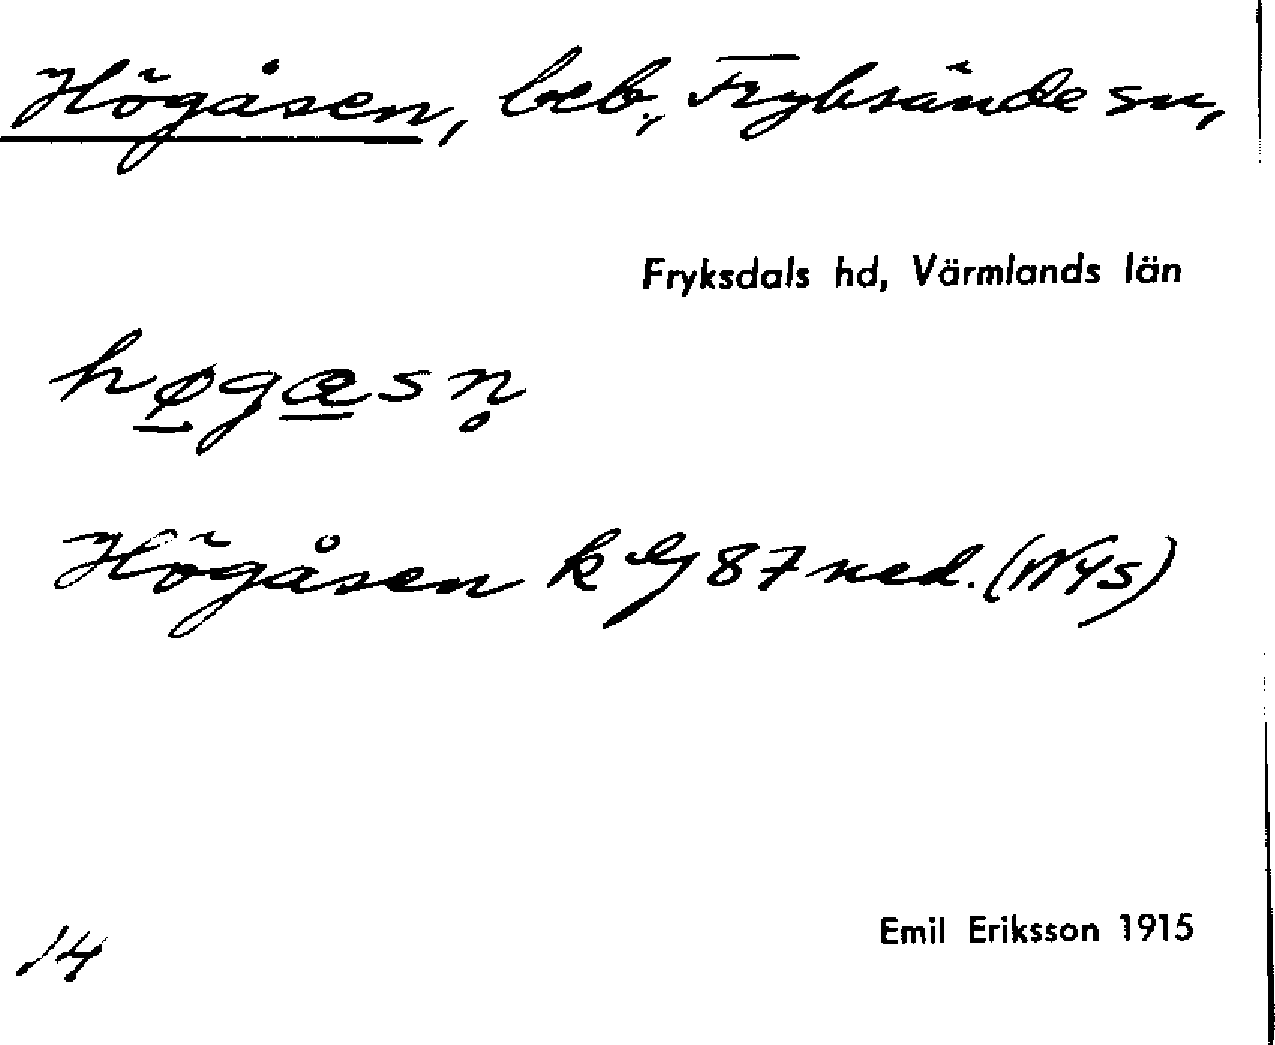 Högåsen, beb., Fryksände sn,
Fryksdals hd, Värmlands län
hø̱gæ̱sn̥
Högåsen k 87 ned. (NYs)
Emil Eriksson 1915
14